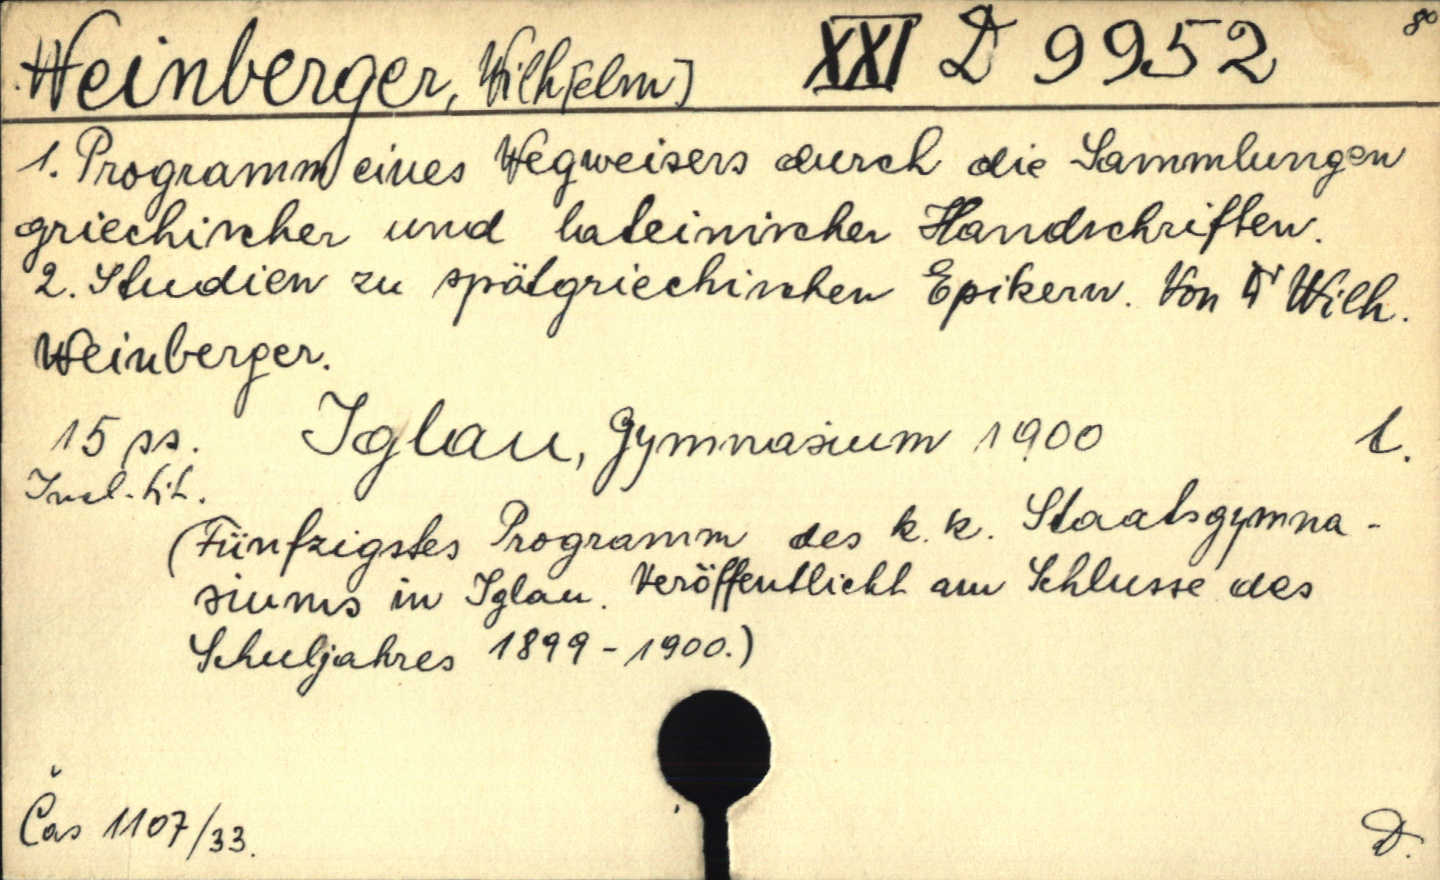 Weinberger, Wilh[elm] XXI D 9952 8°
1. Programm eines Wegweisers durch die Sammlungen
griechischer und lateinischer Handschriften.
2. Studien zu spätgriechischen Epikern. Von Dr Wilh.
Weinberger.
15 ss. Iglau, Gymnasium 1900 1.
Incl. tit.
(Fünfzigstes Programm des k. k. Staatsgymna-
siums in Iglau. Veröffentlicht am Schlusse des
Schuljahres 1899-1900.)
Čas 1107/33. D.